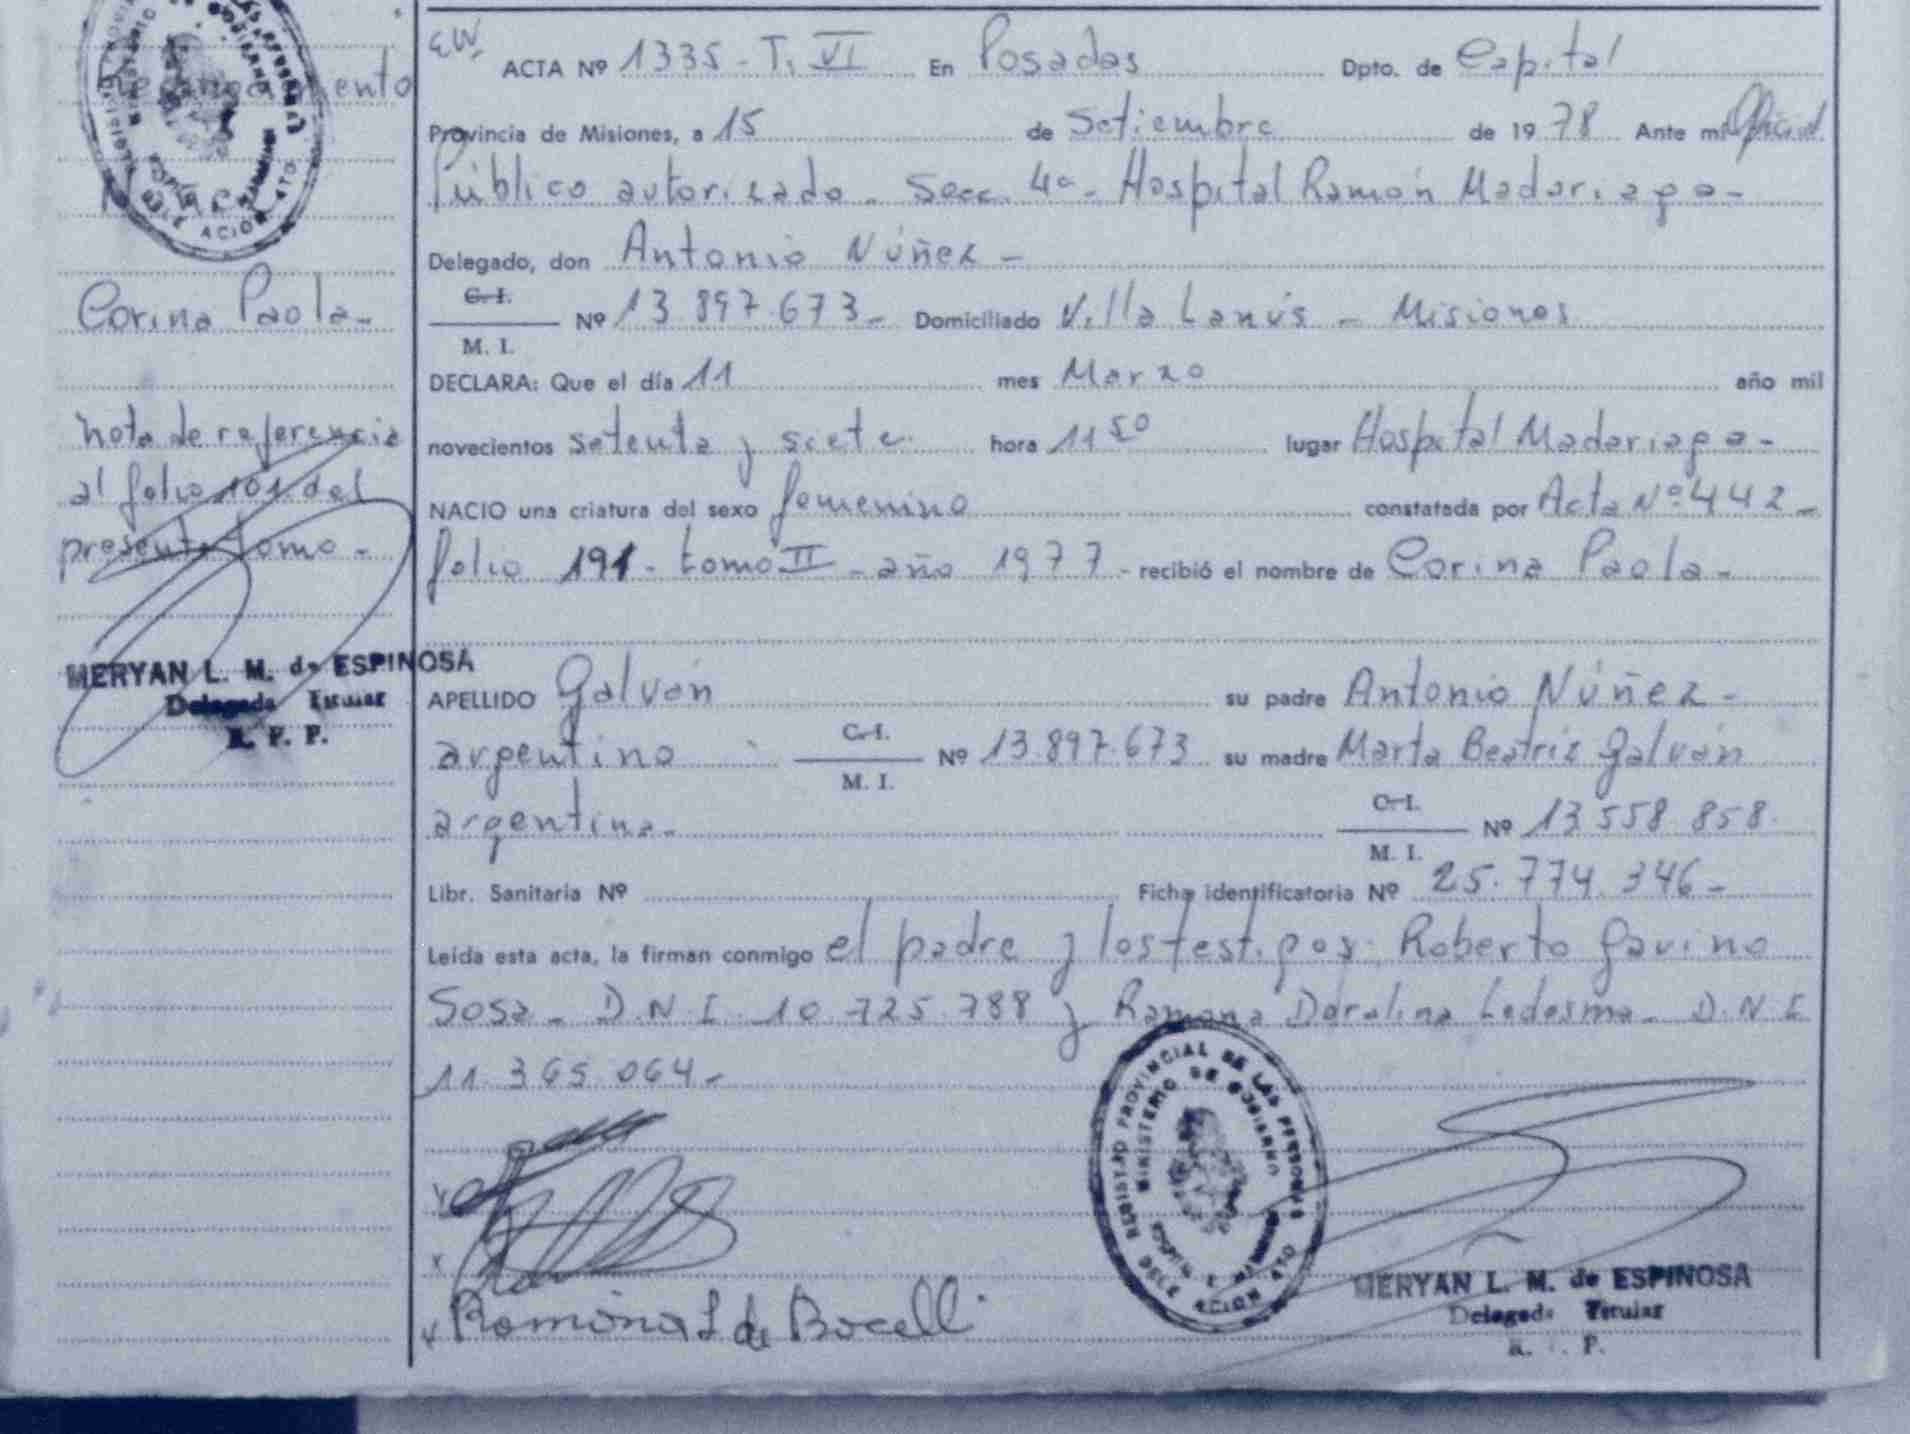 Corina Paola-
nota de referencia
al folio 101 del
presente tomo-
MERYAN L. M. de ESPINOSA
Delegada Titular
R. P. P.
ACTA Nº 1335 - T. VI En Posadas Dpto. de Capital
Provincia de Misiones, a 15 de Setiembre de 1978 Ante mi Oficial
Público autorizado - Secc. 4a - Hospital Ramón Madariaga -
Delegado, don Antonio Núñez -
C. I.
Nº 13.897.673 - Domiciliado Villa Lanús - Misiones
M. I.
DECLARA: Que el día 11 mes Marzo año mil
novecientos setenta y siete. hora 11 50 lugar Hospital Madariaga -
NACIO una criatura del sexo femenino constatada por Acta Nº 442 -
folio 191 - tomo II - año 1977 - recibió el nombre de Corina Paola -
APELLIDO Galván su padre Antonio Núñez -
argentino C. I. M. I. Nº 13.897.673 su madre Marta Beatriz Galván
argentina - C. I. M. I. Nº 13.558.858.
Libr. Sanitaria Nº Ficha identificatoria Nº 25.774.346 -
Leída esta acta, la firman conmigo el padre y los testigos: Roberto Gavino
Sosa - D.N.I. 10.725.788 y Ramona Doralina Ledesma - D.N.I
11.365.064 -
REGISTRO PROVINCIAL DE LAS PERSONAS
MINISTERIO DE GOBIERNO
DELEGACION
Ramona L de Bocelli
MERYAN L. M. de ESPINOSA
Delegada Titular
R. P.